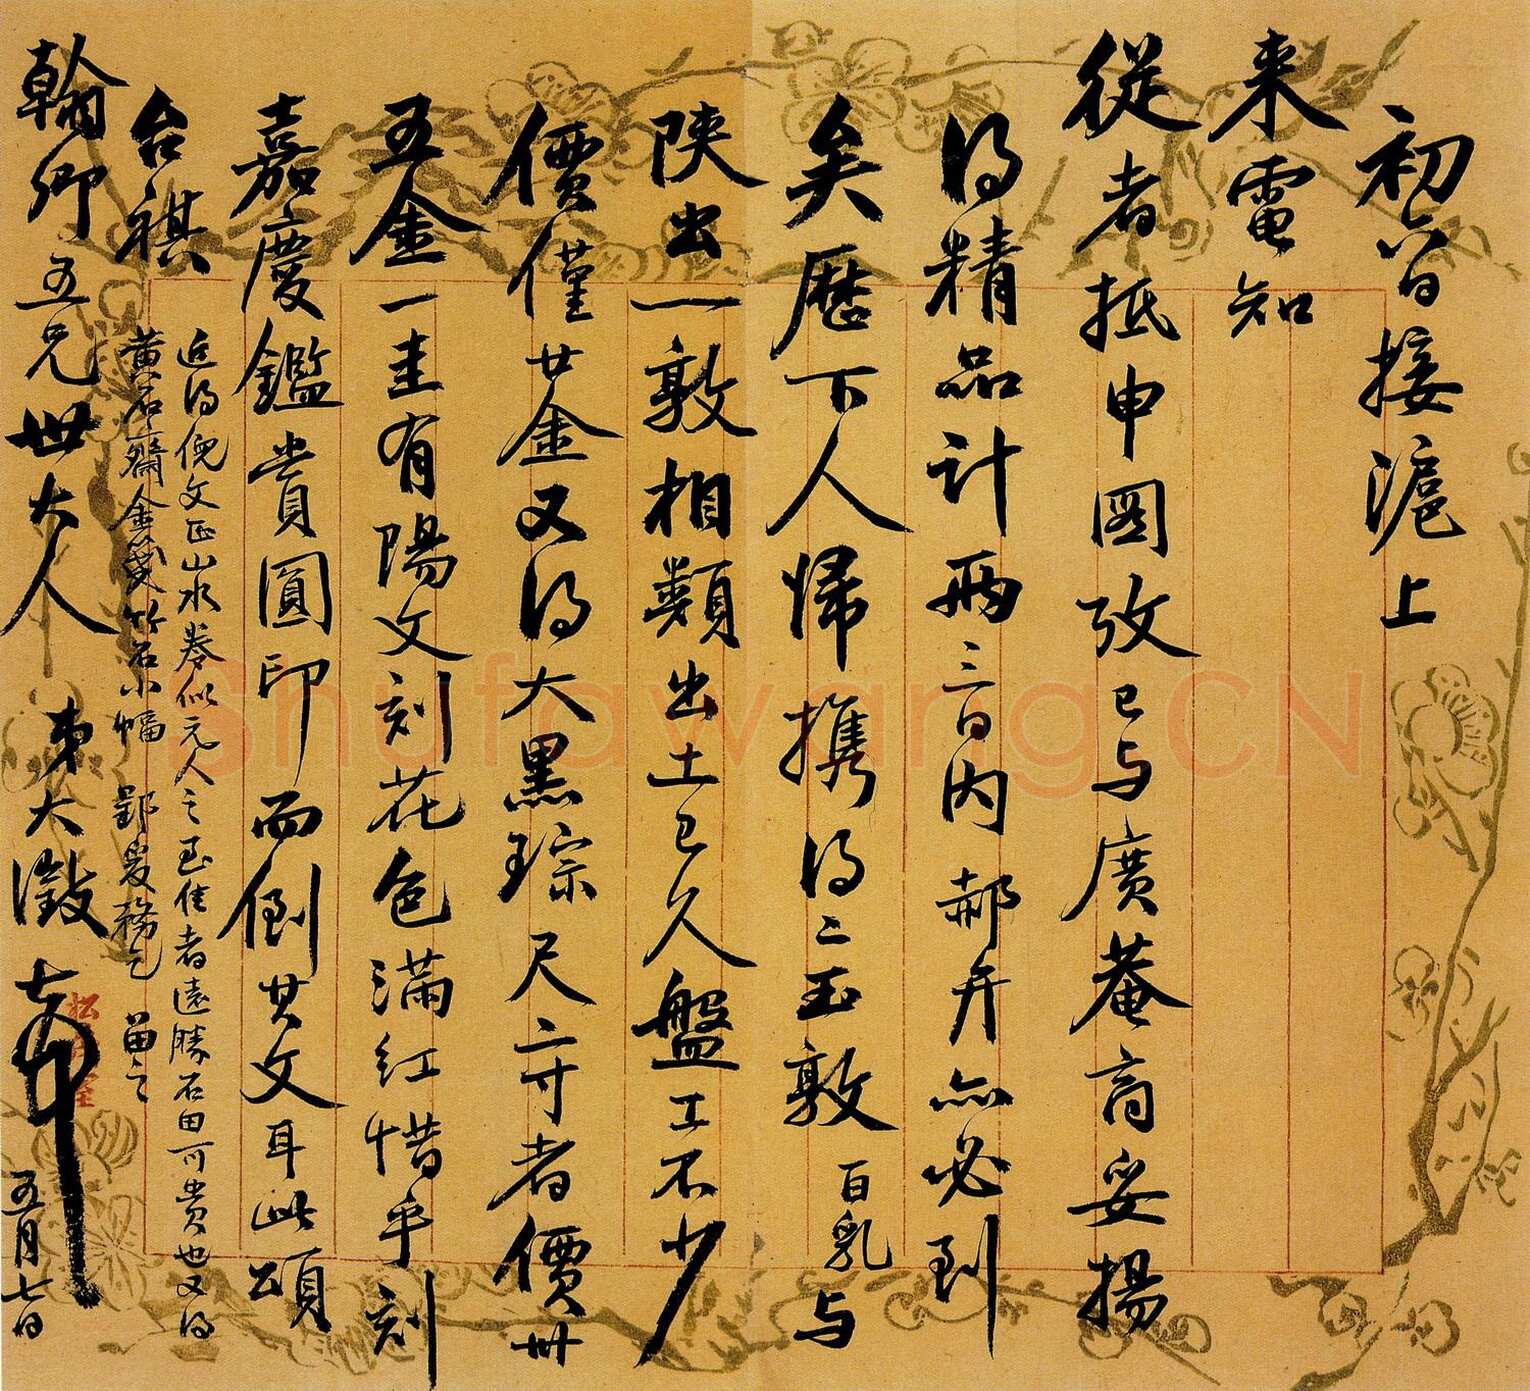 初六日接滬上
来電知
從者抵申圖攷已与廣菴商妥揚
得精品計兩三日内郝弁亦必到
矣歷下人帰携得二玉敦百乳与
陝出一敦相類出土已久盤工不少
價僅廿金又得大黑琮尺二寸者價卅
五金一圭有陽文刻花色滿紅惜乎刻
嘉慶鑑賞圓印而倒其文耳此頌
台祺
近得倪文正山水卷似元人之至佳者遠勝石田可貴也又得
黄石齋金箋竹石小幅
留之
翰卿五兄世大人 弟大澂
五月七日
Shufawang.CN